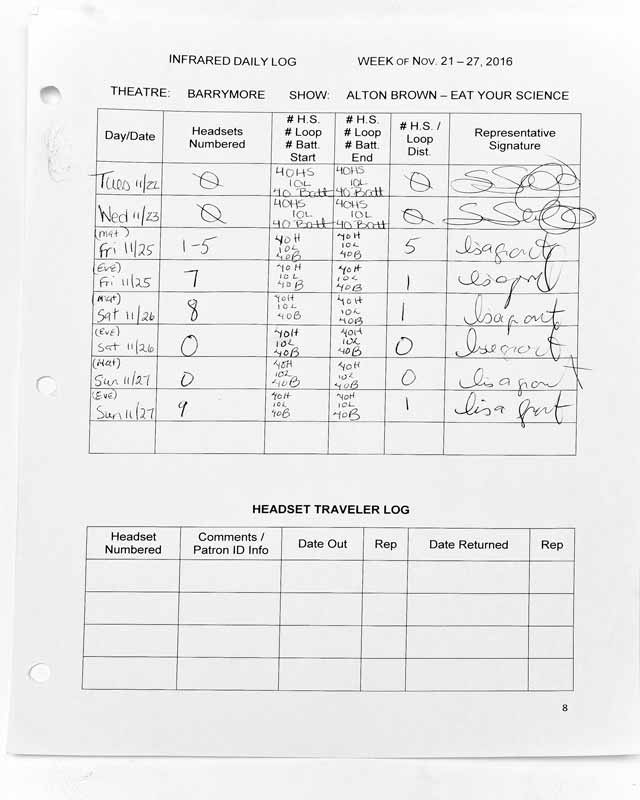 INFRARED DAILY LOG WEEK OF NOV. 21 – 27, 2016
THEATRE: BARRYMORE SHOW: ALTON BROWN – EAT YOUR SCIENCE
Day/Date Headsets Numbered # H.S. # Loop # Batt. Start # H.S. # Loop # Batt. End # H.S. / Loop Dist. Representative Signature
Tues 11/22 0 40HS 10L 40 Batt 40HS 10L 40 Batt 0
Wed 11/23 0 40HS 10L 40 Batt 40HS 10L 40 Batt 0
(Mat) Fri 11/25 1-5 40H 10L 40B 40H 10L 40B 5
(Eve) Fri 11/25 7 40H 10L 40B 40H 10L 40B 1
(Mat) Sat 11/26 8 40H 10L 40B 40H 10L 40B 1
(Eve) Sat 11/26 0 40H 10L 40B 40H 10L 40B 0
(Mat) Sun 11/27 0 40H 10L 40B 40H 10L 40B 0 lisa
(Eve) Sun 11/27 9 40H 10L 40B 40H 10L 40B 1 lisa
HEADSET TRAVELER LOG
Headset Numbered Comments / Patron ID Info Date Out Rep Date Returned Rep
8